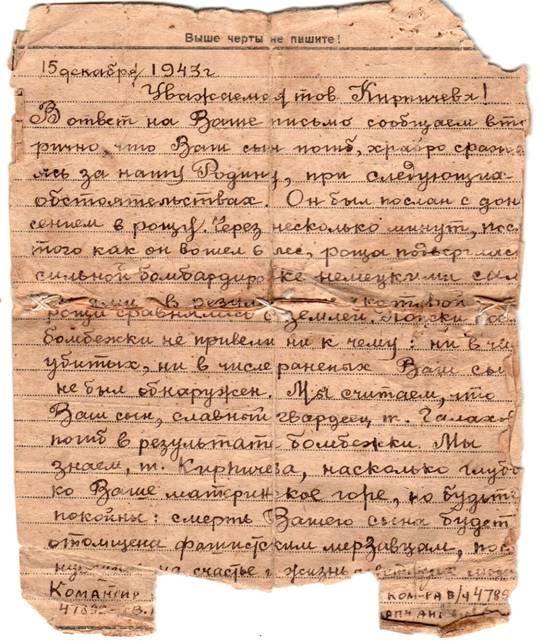 Выше черты не пишите!
15 декабря 1943 г
Уважаемая тов Кирпичева!
В ответ на Ваше письмо сообщаем вто
рично, что Ваш сын погиб, храбро сража
ясь за нашу Родину, при следующих
обстоятельствах. Он был послан с дон
сением в рощу. Через несколько минут, пос
того как он вошел в лес, роща подверглась
сильной бомбардировке немецкими
в которой
роща сравнялась с землей. Поиски
бомбежки не привели ни к чему: ни в чи
убитых, ни в числе раненых Ваш сы
не был обнаружен. Мы считаем, что
Ваш сын, славный гвардеец т. Галахов
погиб в результате бомбежки. Мы
знаем, т. Кирпичева, насколько глубо
ко Ваше материнское горе, но будьте
покойны: смерть Вашего сына будет
отомщена фашистским мерзавцам, пос
на счастье и жизнь
Командир КОМ-РА В/Ч 4789